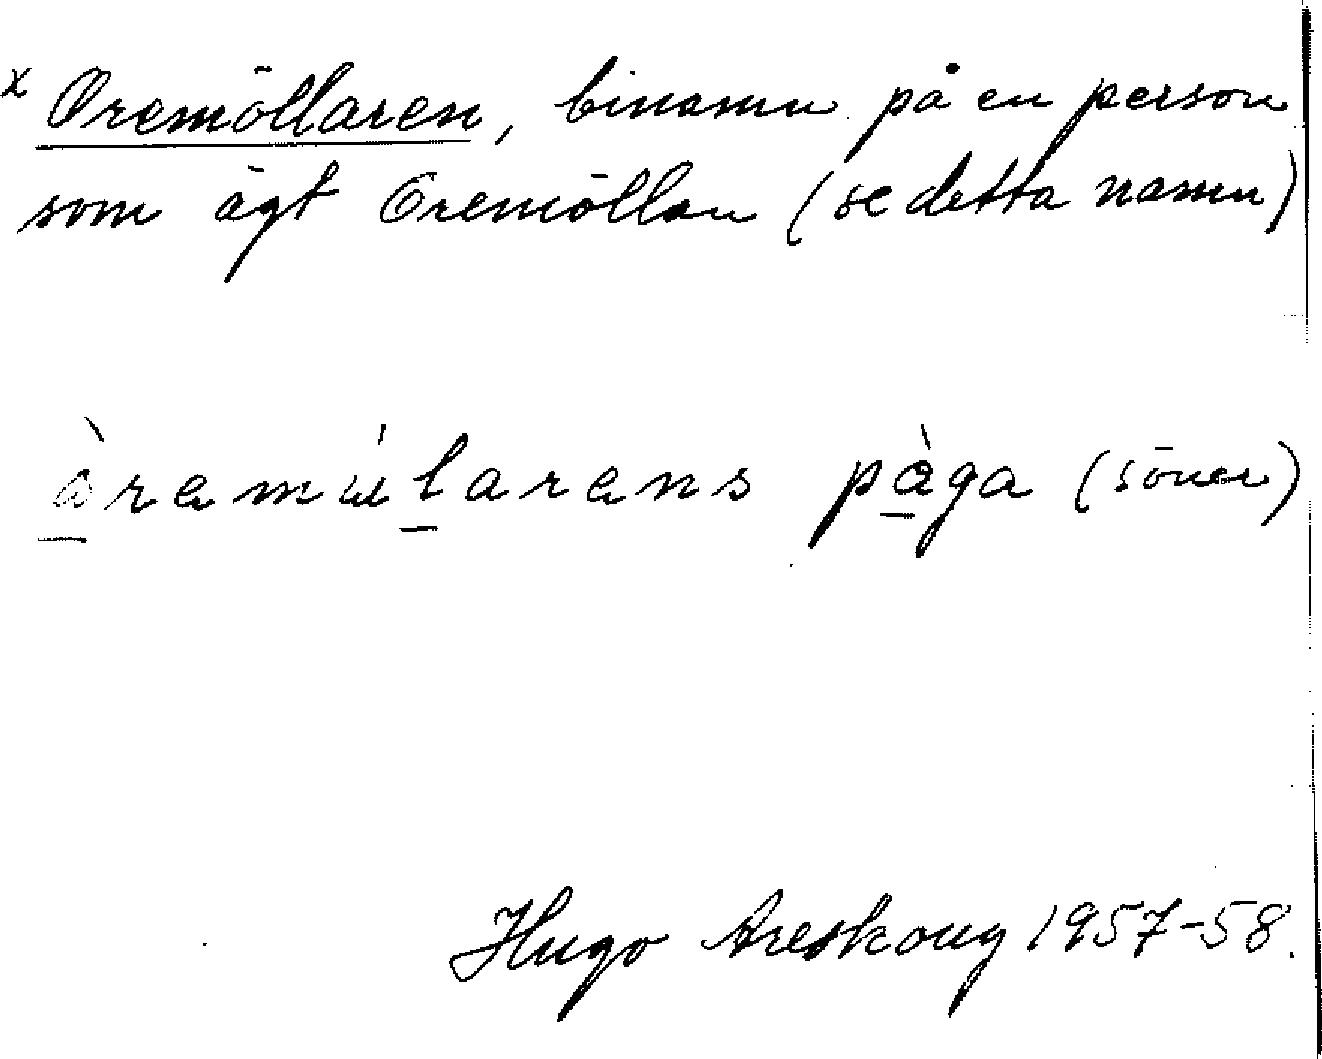 x Oremöllaren, binamn på en person
som ägt Oremöllan (se detta namn)
àramúlarans pàga (söner)
Hugo Areskoug 1957-58.